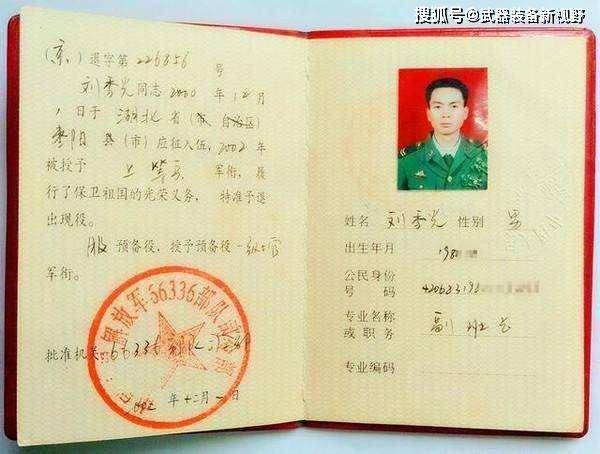 搜狐号@武器装备新视野
(京)退字第 226356 号
刘秀光同志2000年12月
日于湖北省(市、自治区)
枣阳县(市)应征入伍,2002年
被授予上等兵军衔,履
行了保卫祖国的光荣义务,特准予退
出现役。
服预备役,授予预备役一级士官
军衔。
批准机关:66336部队
年十二月一日
中国人民解放军66336部队
姓名 刘秀光 性别 男
出生年月 198
公民身份
号码
专业名称
或职务 副班长
专业编码